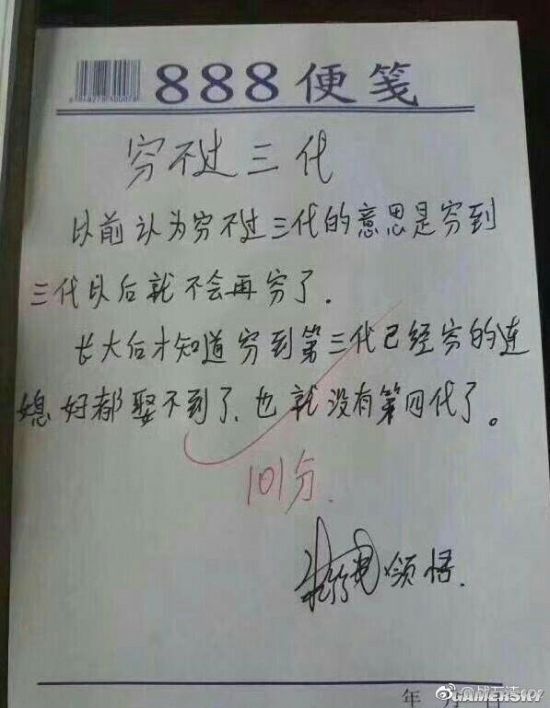 888便笺
穷不过三代
以前认为穷不过三代的意思是穷到
三代以后就不会再穷了.
长大后才知道穷到第三代已经穷的连
媳妇都娶不到了、也就没有第四代了。
101分.
领悟.
年 月 日
GAMERSKY